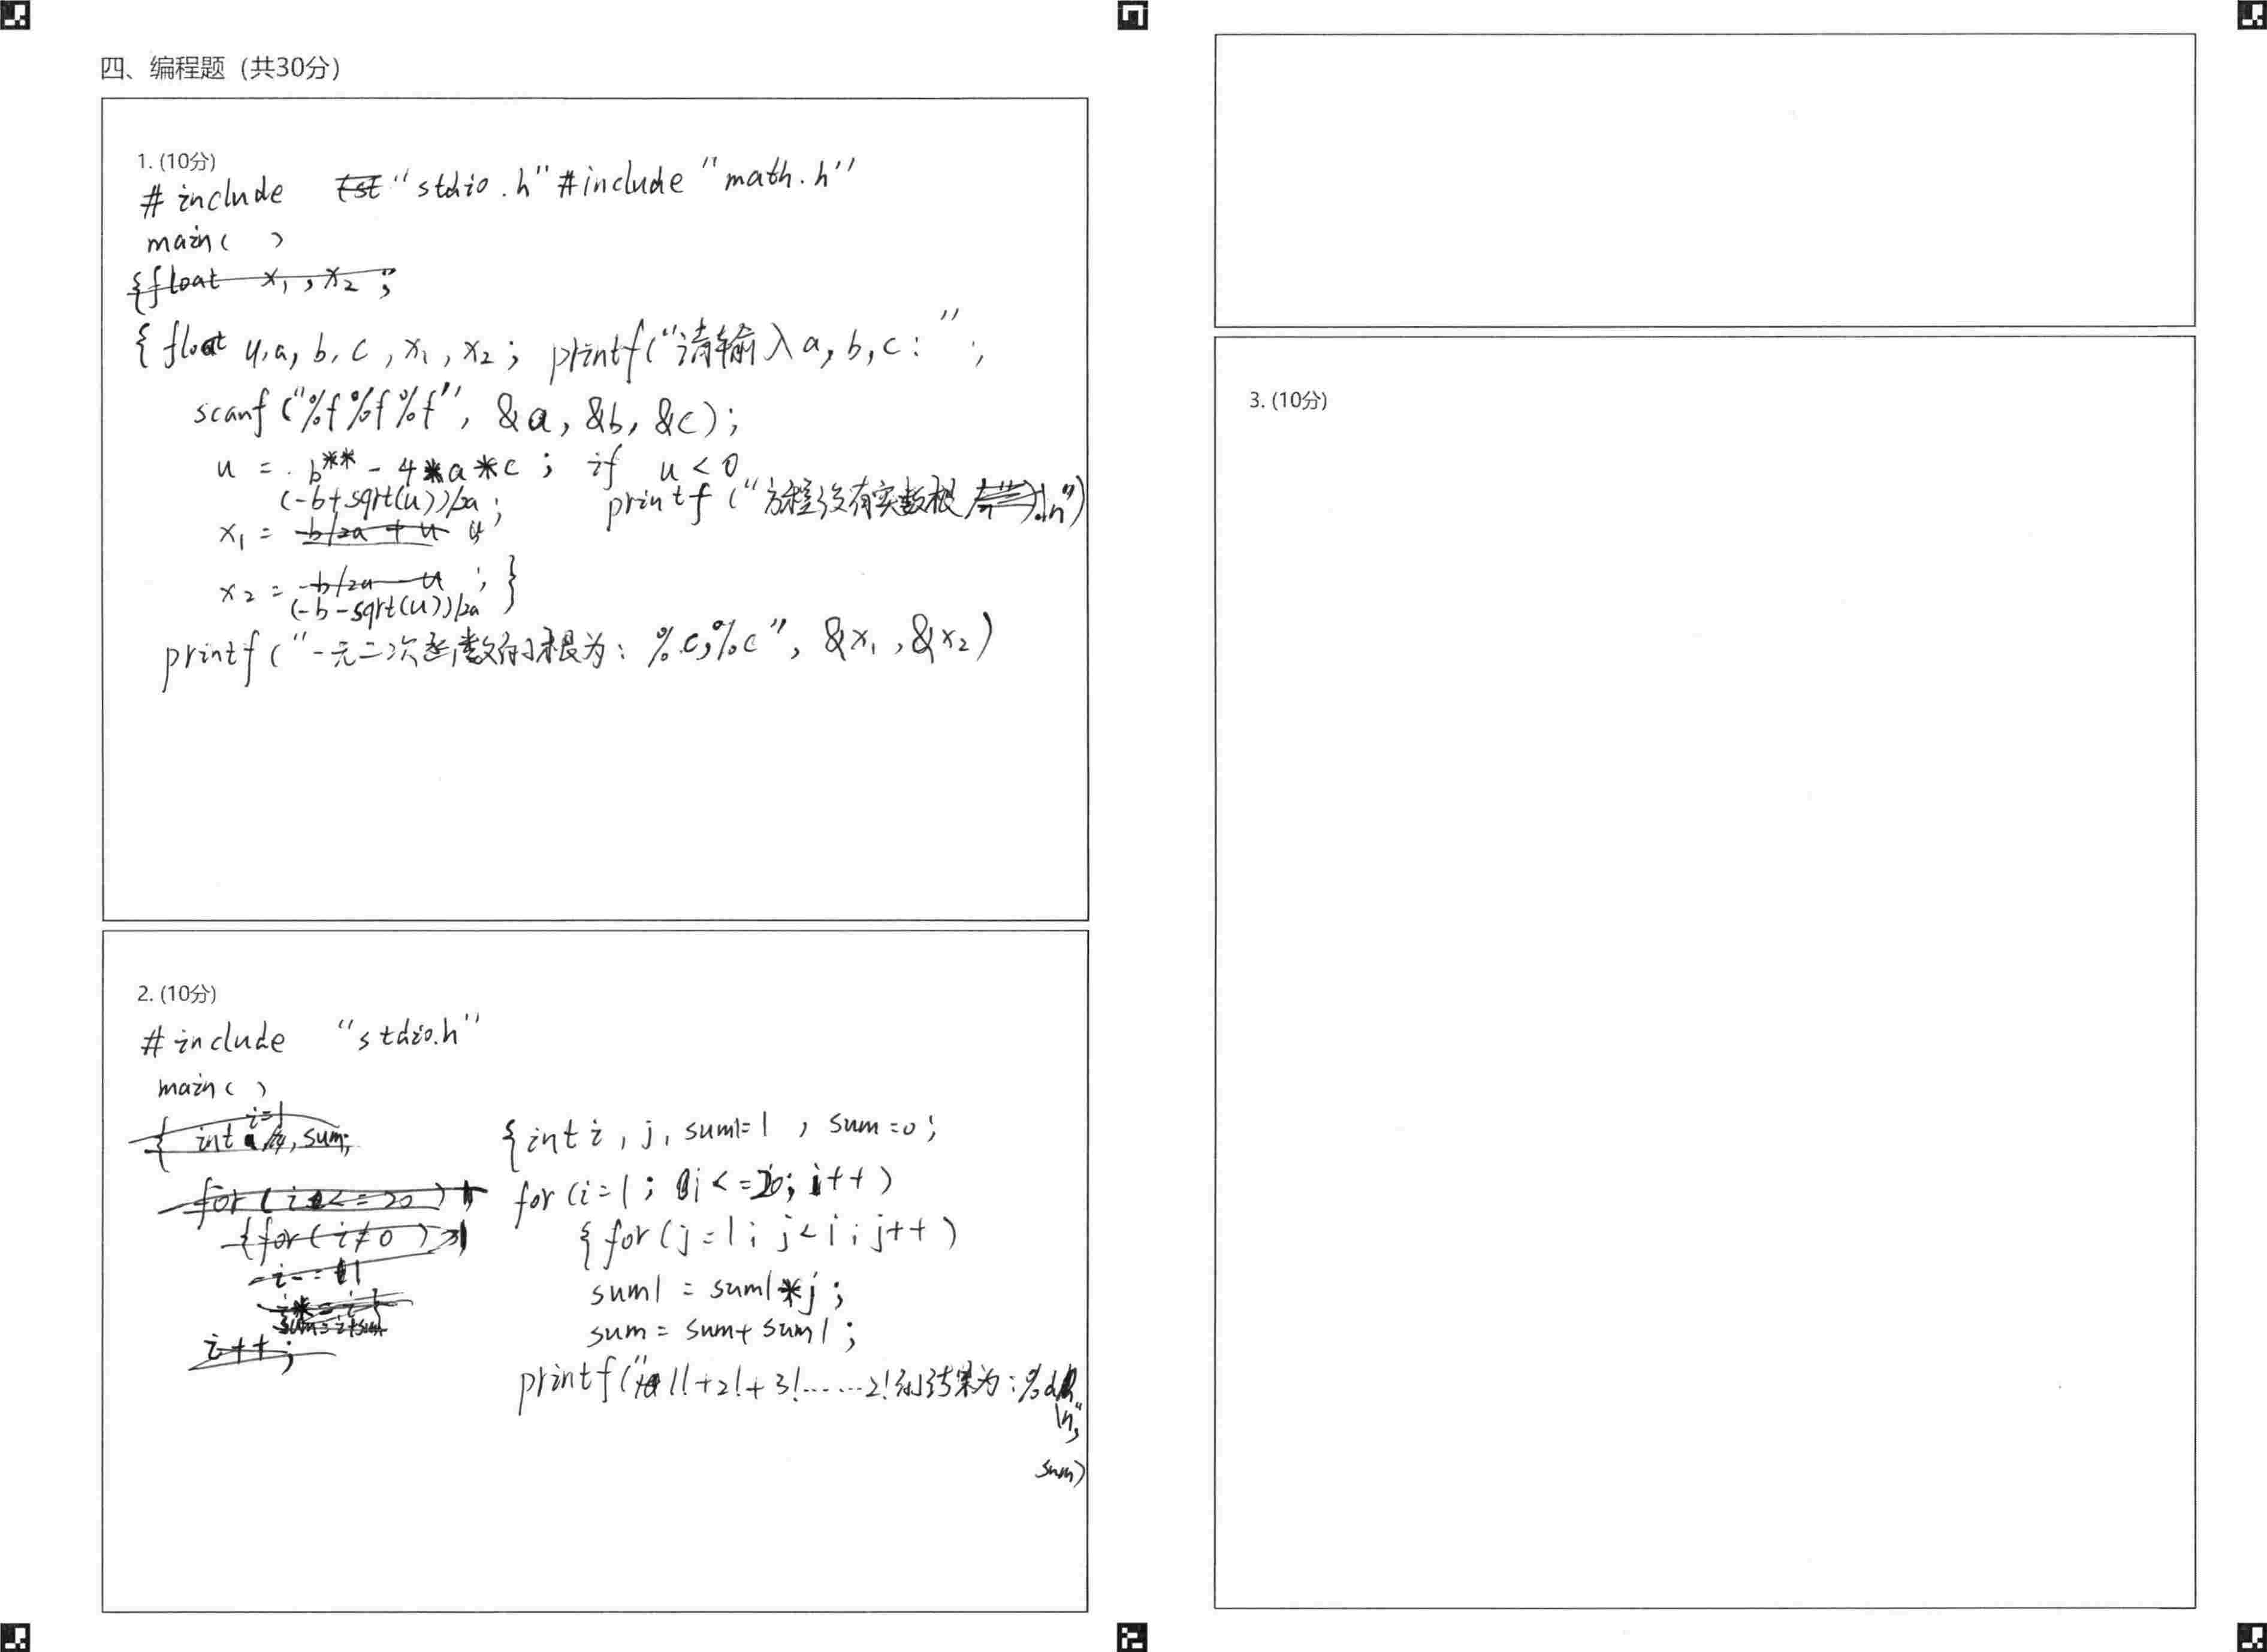 四、编程题（共30分）
1. (10分)
# include "stdio.h" #include "math.h"
main( )
{float x1, x2;
{float u,a, b, c, x1, x2; printf("请输入a, b, c: ";
scanf ("%f%f%f", &a, &b, &c);
u = b** - 4*a*c ; if u<0
(-b+sqrt(u))/2a; printf ("方程没有实数根\n")
x1 = -b/2a + u
x2 = -b/2a - u ; }
(-b-sqrt(u))/2a
printf ("一元二次函数的根为: %c,%c", &x1, &x2)
2. (10分)
# include "stdio.h"
main( )
i=1
{ int , sum; {int i, j, sum1=1, sum=0;
for (i<=20) for (i=1; i<=20; i++)
{for(i≠0) {for(j=1; j<i; j++)
sum1 = sum1*j;
sum=i+sum sum = sum+sum1;
i++;
printf("1!+2!+3!……2!的结果为:%d
\n",
sum)
3. (10分)